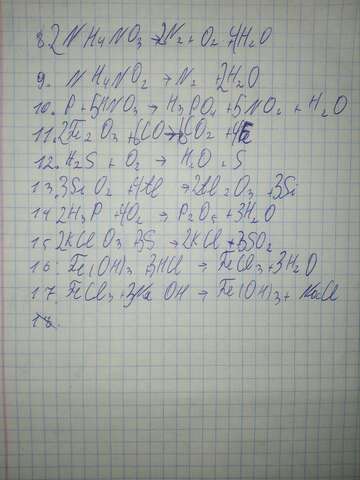 8. 2NH4NO3 → 2N2 + O2 + 4H2O
9. NH4NO2 → N2 + 2H2O
10. P + 5HNO3 → H3PO4 + 5NO2 + H2O
11. 2Fe2O3 + 6CO → 6CO2 + 4Fe
12. H2S + O2 → H2O + S
13. 3SiO2 + 4Al → 2Al2O3 + 3Si
14 2H3P + 4O2 → P2O5 + 3H2O
15. 2KClO3 + 3S → 2KCl + 3SO2
16. Fe(OH)3 + 3HCl → FeCl3 + 3H2O
17. FeCl3 + 3NaOH → Fe(OH)3 + NaCl
18.